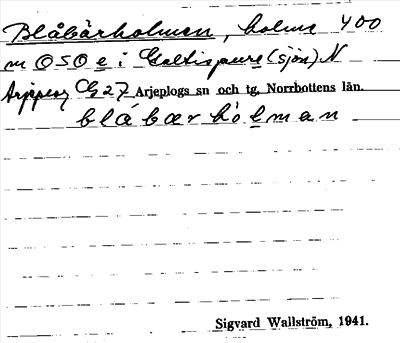 Blåbärholmen, holme 400
m OSO e i Galtispure (sjön) N
Arjeplog C 27 Arjeplogs sn och tg, Norrbottens län.
blåbærhòlman
Sigvard Wallström, 1941.